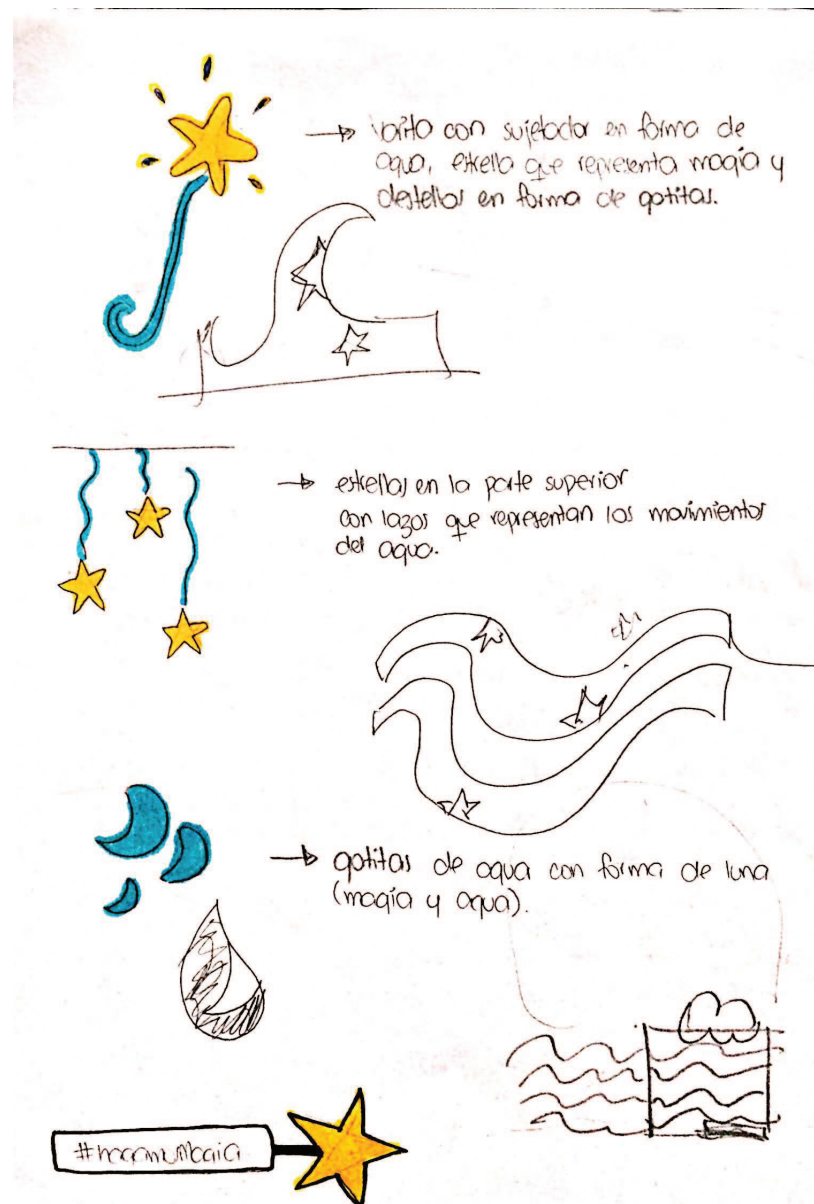 varita con sujetador en forma de
agua, estrella que representa magia y
destellos en forma de gotitas.
estrellas en la parte superior
con lazos que representan los movimientos
del agua.
gotitas de agua con forma de luna
(magia y agua).